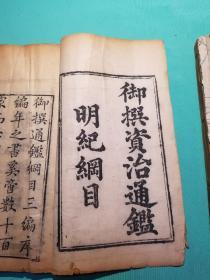 御撰資治通鑑
明紀綱目
御撰通鑑綱目三編序
編年之書奚啻數十百